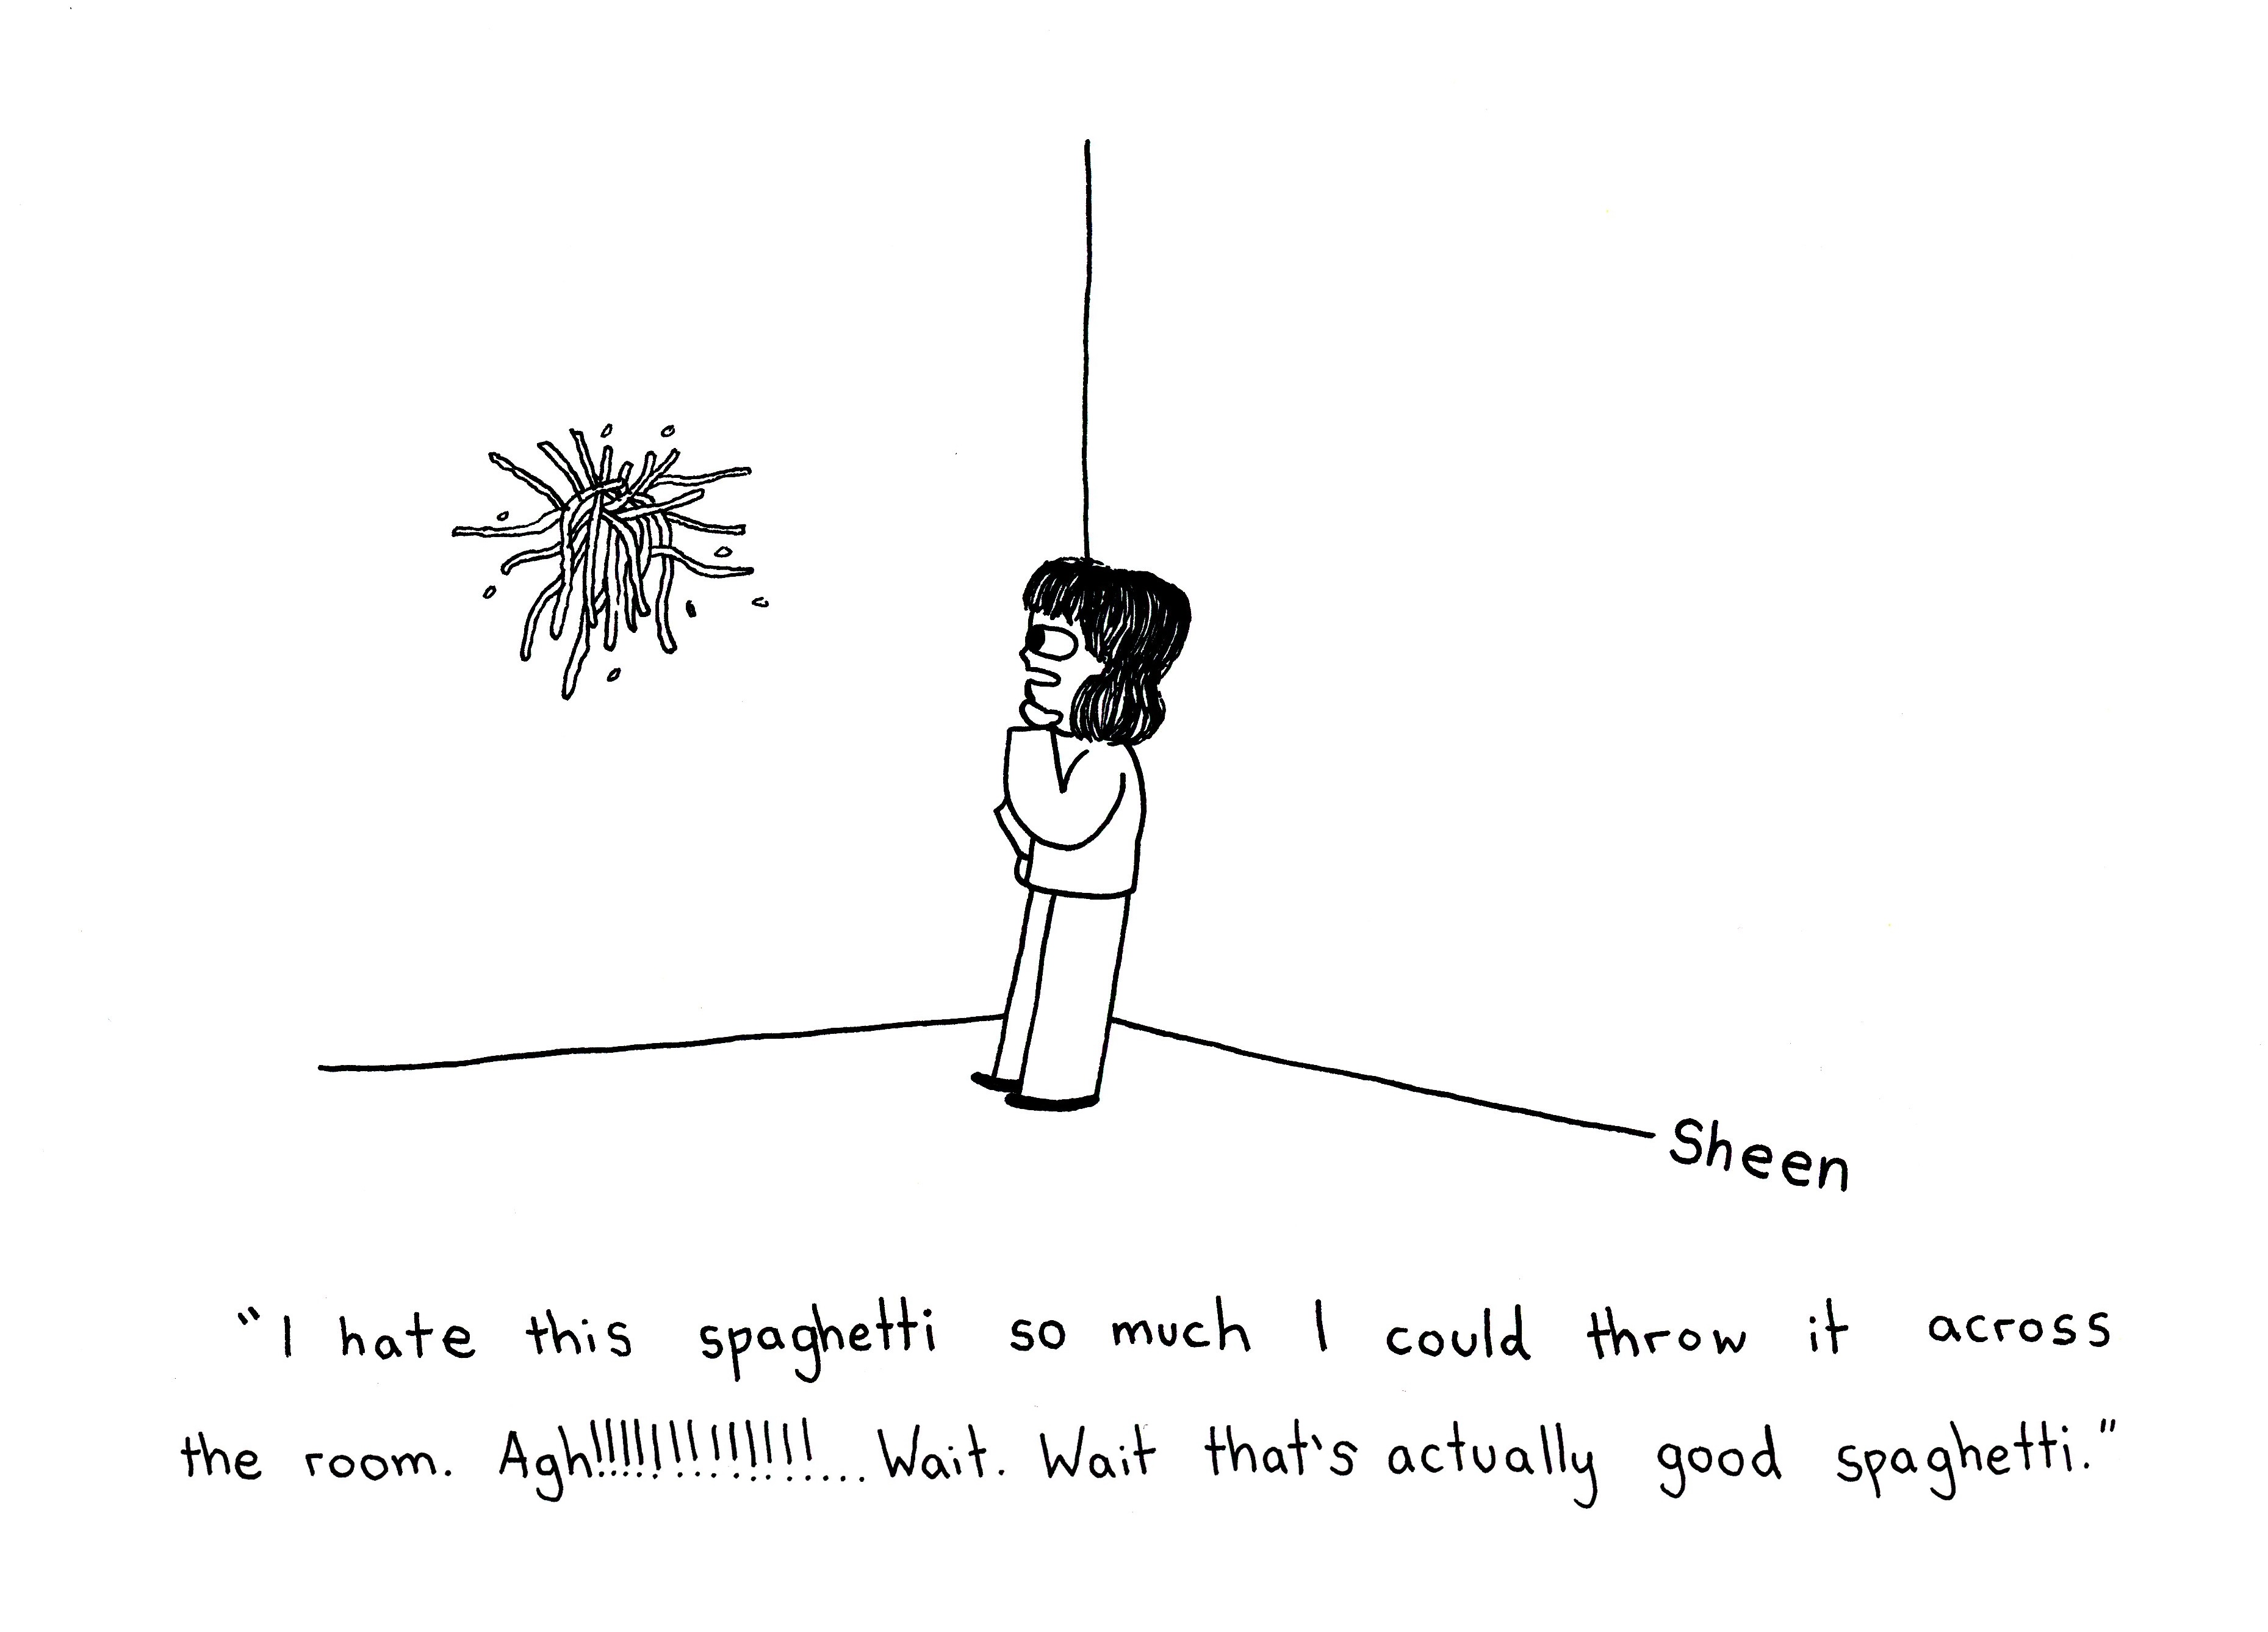 Sheen
"I hate this spaghetti so much I could throw it across
the room. Agh!!!!!!!!!!!!!!... Wait. Wait that's actually good spaghetti."